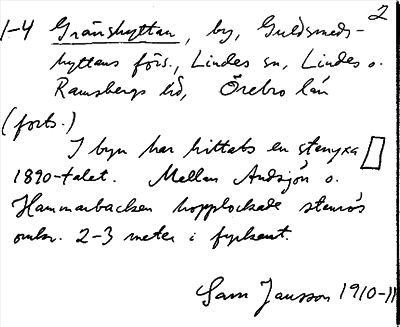 2
1-4 Gränshyttan, by, Guldsmeds-
hyttans förs., Lindes sn, Lindes o.
Ramsbergs hd, Örebro län
(forts.)
I byn har hittats en stenyxa
1890-talet. Mellan Andsjön o.
Hammarbacken hopplockade stenrös
omkr. 2-3 meter i fyrkant.
Sam Jansson 1910-11